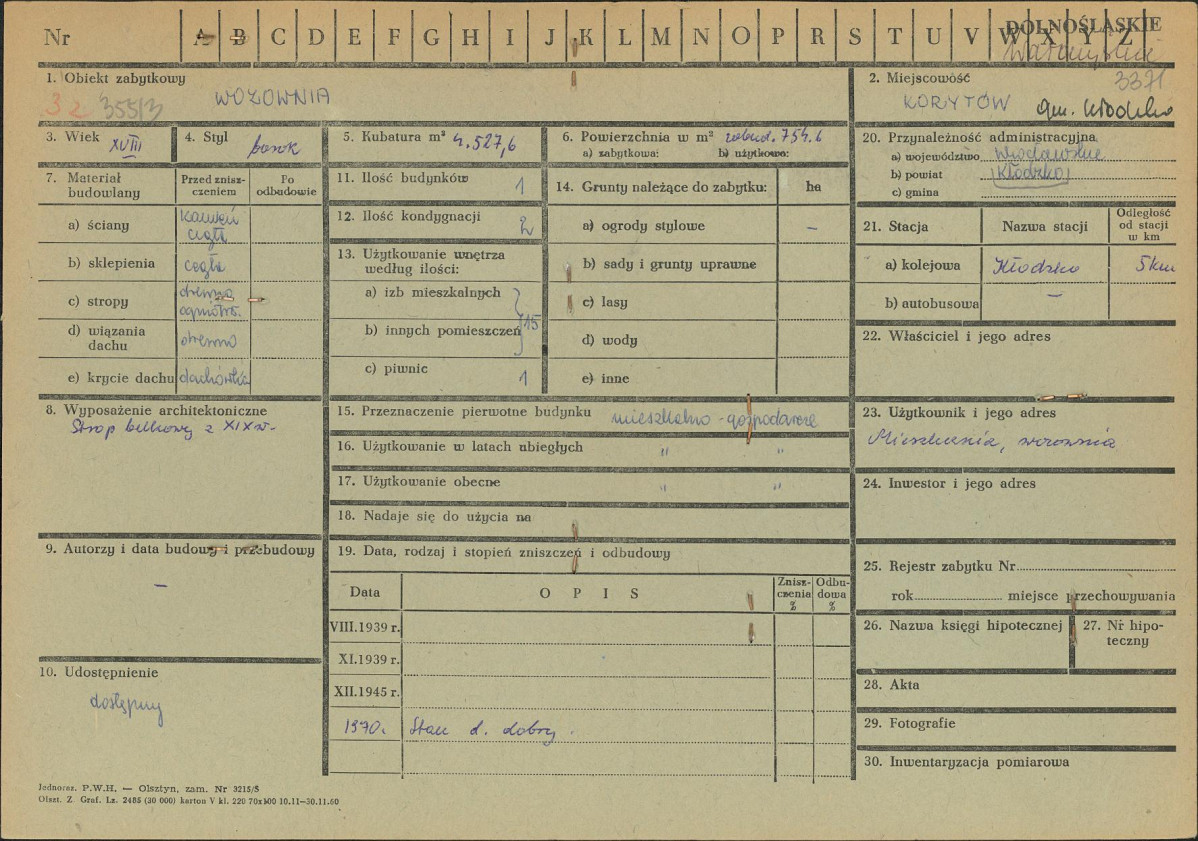 Nr A B C D E F G H I J K L M N O P R S T U V W X Y Z
DOLNOŚLĄSKIE
3371
1. Obiekt zabytkowy
32 355/3
WOZOWNIA
2. Miejscowość
KORYTÓW gm. Kłodzko
3. Wiek XVIII
4. Styl barok
5. Kubatura m³ 4.527,6
6. Powierzchnia w m² zabud. 754.6
a) zabytkowa: b) użytkowa:
7. Materiał budowlany
Przed zniszczeniem
Po odbudowie
a) ściany kamień cegła
b) sklepienia cegła
c) stropy drewno ogniotrw.
d) wiązania dachu drewno
e) krycie dachu dachówka
8. Wyposażenie architektoniczne
Strop belkowy z XIX w.
9. Autorzy i data budowy i przebudowy
—
10. Udostępnienie
dostępny
11. Ilość budynków 1
12. Ilość kondygnacji 2
13. Użytkowanie wnętrza
według ilości:
a) izb mieszkalnych
b) innych pomieszczeń 15
c) piwnic 1
14. Grunty należące do zabytku: ha
a) ogrody stylowe —
b) sady i grunty uprawne
c) lasy
d) wody
e) inne
15. Przeznaczenie pierwotne budynku mieszkalno - gospodarcze
16. Użytkowanie w latach ubiegłych " "
17. Użytkowanie obecne " "
18. Nadaje się do użycia na
19. Data, rodzaj i stopień zniszczeń i odbudowy
Data OPIS Zniszczenia % Odbudowa %
VIII.1939 r.
XI.1939 r.
XII.1945 r.
1970. Stan d. dobry.
20. Przynależność administracyjna
a) województwo wrocławskie
b) powiat Kłodzko
c) gmina
21. Stacja Nazwa stacji Odległość od stacji w km
a) kolejowa Kłodzko 5 km
b) autobusowa —
22. Właściciel i jego adres
23. Użytkownik i jego adres
Mieszkania, wozownia
24. Inwestor i jego adres
25. Rejestr zabytku Nr
rok miejsce przechowywania
26. Nazwa księgi hipotecznej
27. Nr hipoteczny
28. Akta
29. Fotografie
30. Inwentaryzacja pomiarowa
Jednoraz. P.W.H. — Olsztyn, zam. Nr 3215/S
Olszt. Z. Graf. Lz. 2485 (30 000) karton V kl. 220 70x100 10.11—30.11.60